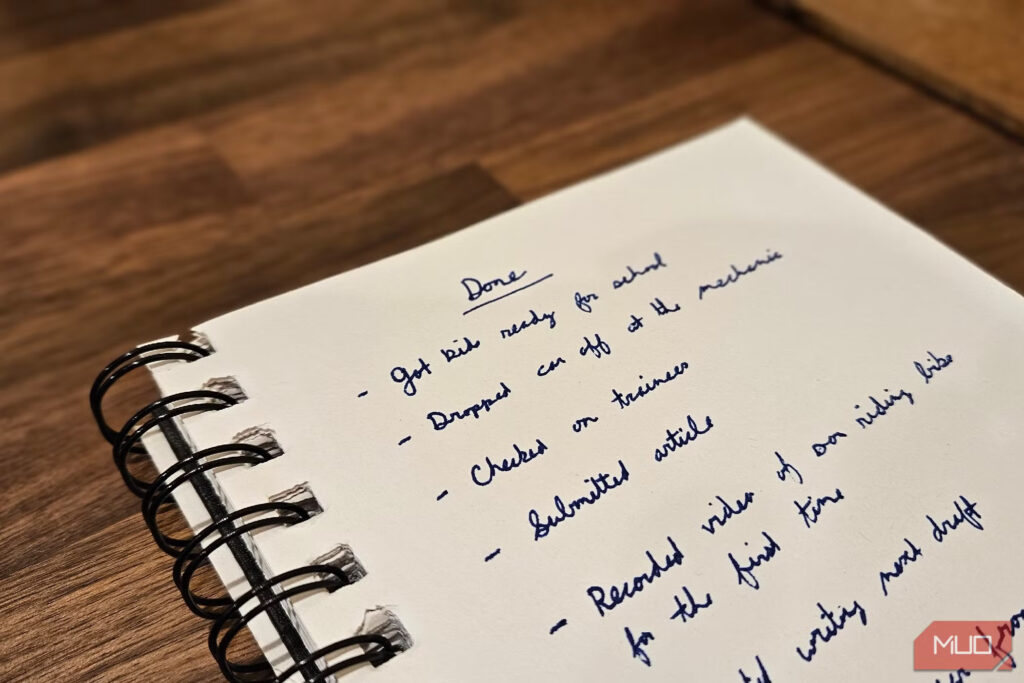 Done
- Got kids ready for school
- Dropped car off at the mechanic
- Checked on trainees
- Submitted article
- Recorded video of son riding bike
for the first time
writing next draft
MUO